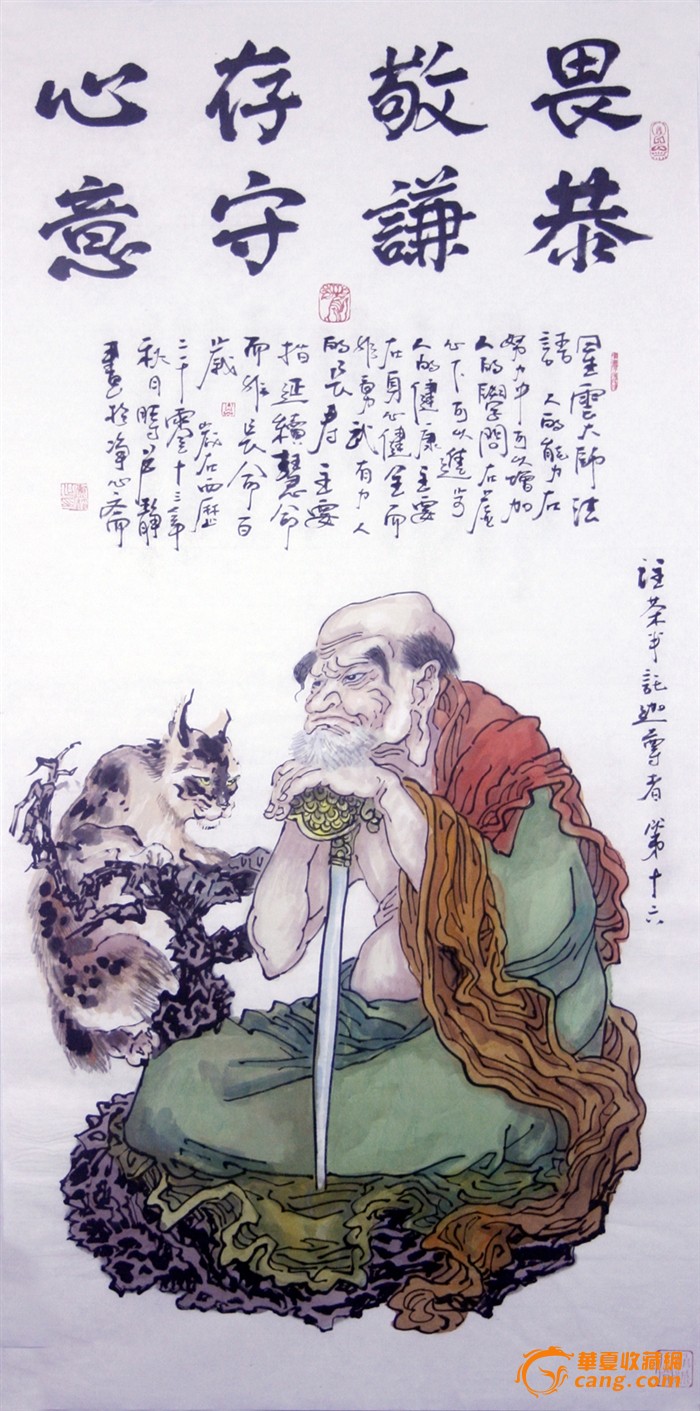 畏敬存心
恭謙守意
星雲大師法
語 人的能力在
努力中可以增加
人的學問在虛
心下可以進步
人的健康主要
在身心健全而
非勇武有力人
的長寿主要
指延續慧命
而非長命百
歲 歲在西歷
二千零十三年
秋日時
畫於净心齋
注茶半託迦尊者 第十六
華夏收藏網
cang.com